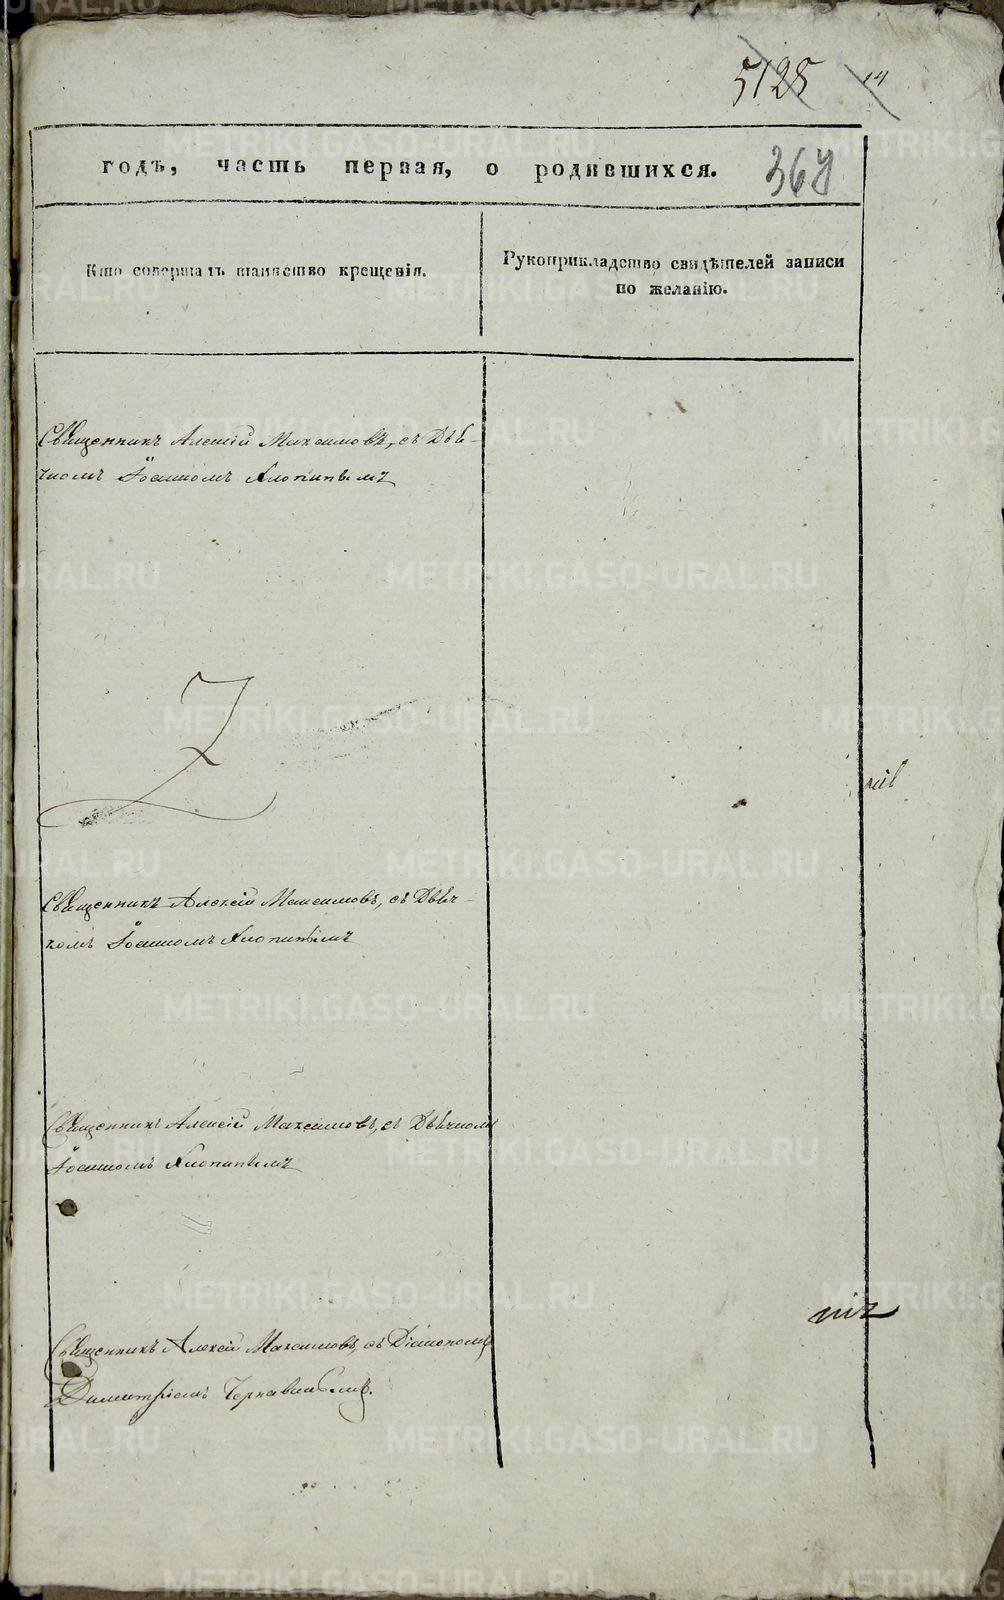 5128 14
годъ, часть первая, о родившихся. 368
Кто совершалъ таинство крещенія.
Рукоприкладство свидѣтелей записи
по желанію.
Священникъ Алексій Максимовъ, съ Дьяч-
комъ Іоанномъ Хлопинымъ
Священникъ Алексій Максимовъ, съ Дьяч-
комъ Іоанномъ Хлопинымъ
Священникъ Алексій Максимовъ, съ Дьячкомъ
Іоанномъ Хлопинымъ
Священникъ Алексій Максимовъ, съ Діакономъ
Димитріемъ Чернавинымъ.
METRIKI.GASO-URAL.RU